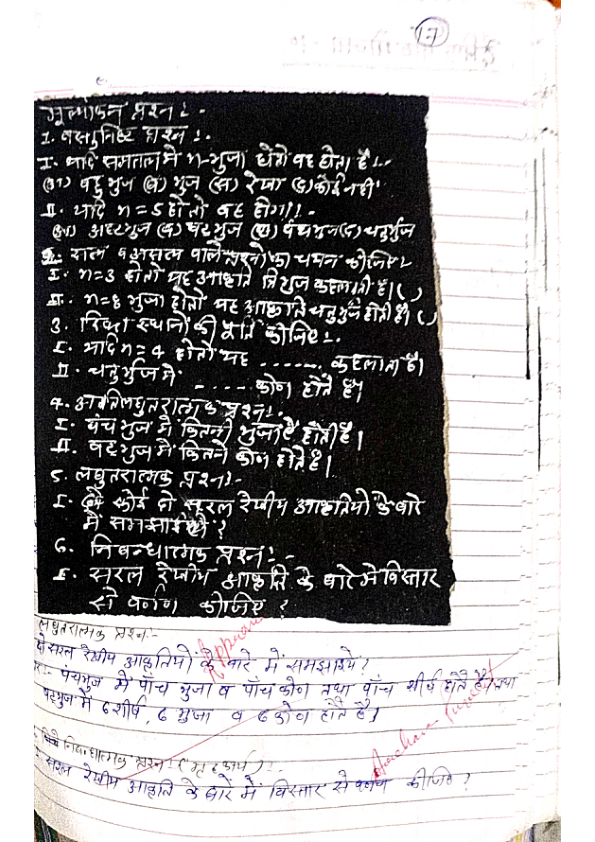 17
मूल्यांकन प्रश्न :-
1. वस्तुनिष्ठ प्रश्न :-
I. यदि समतल मे n-भुजा होंगे वह होता है :-
(अ) बहु भुज (ब) भुज (स) रेखा (द) कोई नही
II. यदि n = 5 हो तो वह होगा :-
(अ) अष्टभुज (ब) षट भुज (स) पंचभुज (द) चतुर्भुज
2. सत्य व असत्य वाले प्रश्नो का चयन कीजिए
I. n=3 हो तो यह आकृति त्रिभुज कहलाती है। ( )
II. n=8 भुजा हो तो यह आकृति चतुर्भुज होती है। ( )
3. रिक्त स्थानों की पूर्ति कीजिए :-
I. यदि n = 4 हो तो यह ....... कहलाता है।
II. चतुर्भुज में ..... कोण होते है।
4. अतिलघुतरात्मक प्रश्न :-
I. पंचभुज में कितनी भुजाएं होती है।
II. षट भुज में कितने कोण होते है।
5. लघुतरात्मक प्रश्न :-
I. कोई दो सरल रेखीय आकृतियो के बारे
में समझाइये ?
6. निबन्धात्मक प्रश्न :-
I. सरल रेखीय आकृति के बारे मे विस्तार
से वर्णण कीजिए ?
लघुतरात्मक प्रश्न :-
दो सरल रेखीय आकृतियों के बारे में समझाइये ?
पंचभुज में पाँच भुजा व पाँच कोण तथा पाँच शीर्ष होते है तथा
षटभुज में 6 शीर्ष, 6 भुजा व 6 कोण होते है।
निबन्धात्मक प्रश्न (गृहकार्य) :-
सरल रेखीय आकृति के बारें में विस्तार से वर्णण कीजिए ?